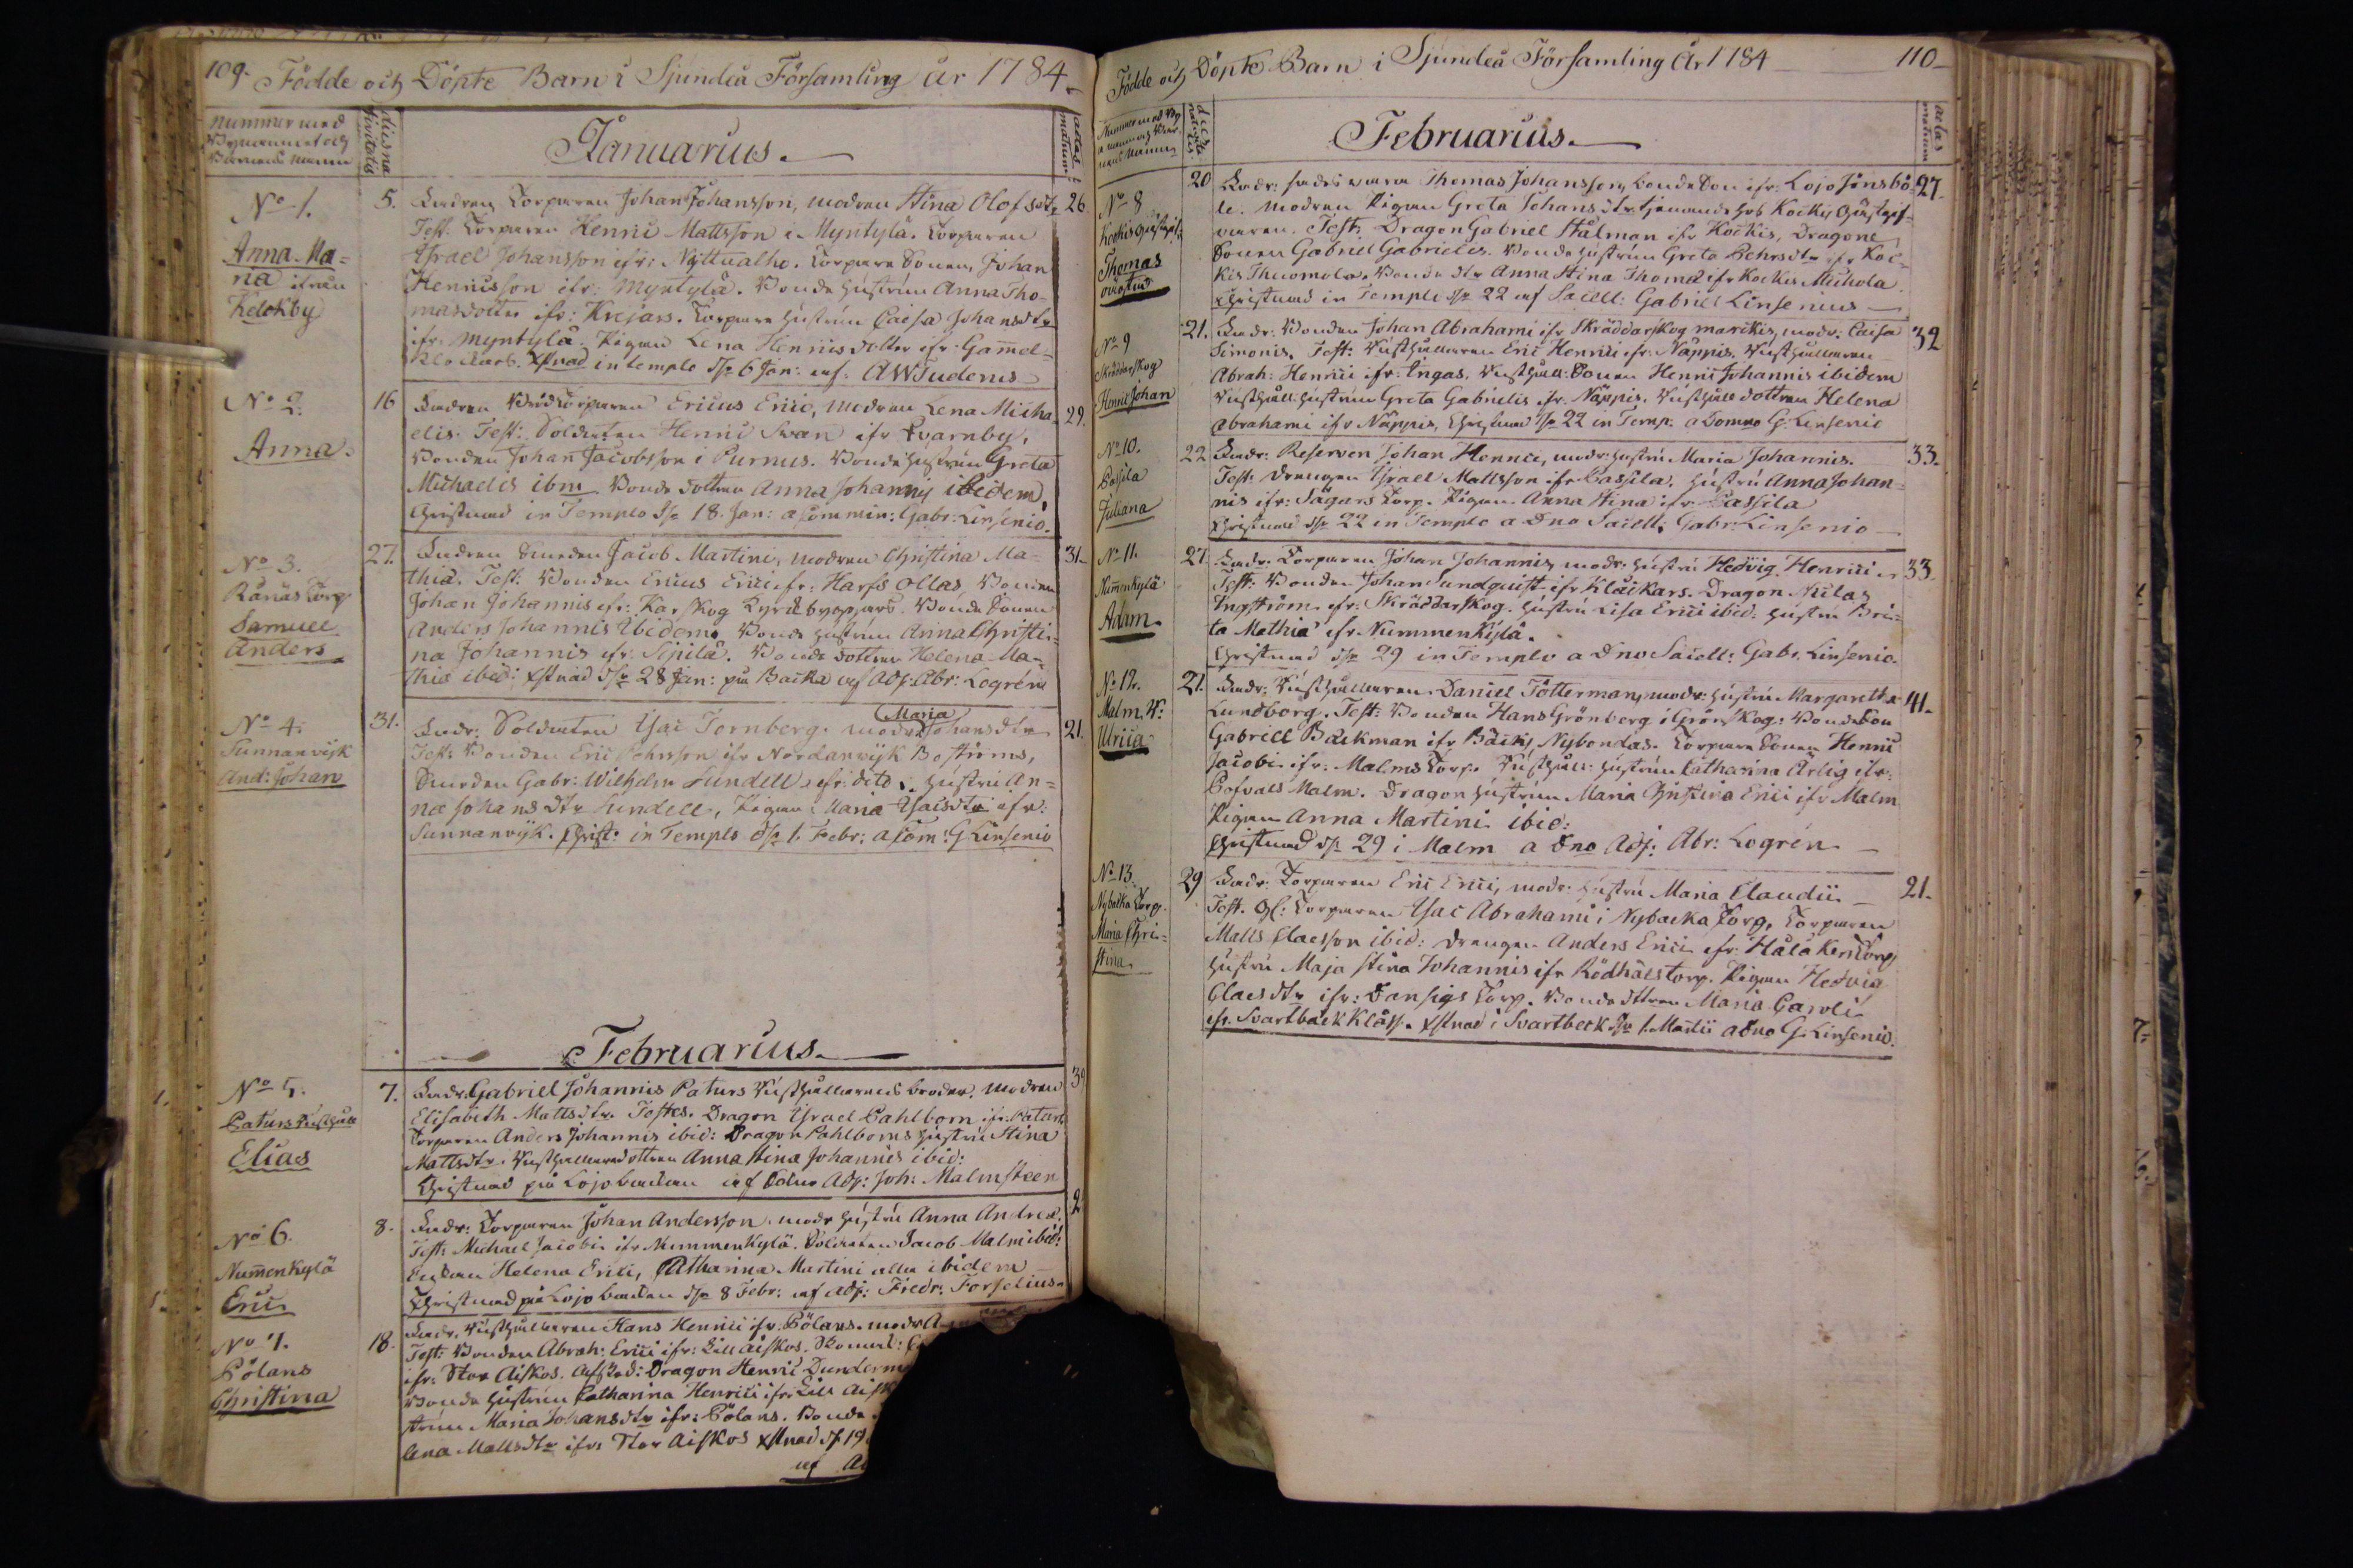 109. Födde och Döpte Barn i Sjundeå Församling år 1784
nummer med
Bynamnet och
Barnens namn
dies na
tivitatis
Januarius.
aetas
matrum
No 1.
Anna Ma=
ria ifrån
Kelokby
5.
26
Fadren Torparen Johan Johansson, modren Stina Olofsdtr
Test. Torparen Henric Mattsson i Myntylä. Torparen
Israel Johansson ifr: Torpare Sonen, Johan
Henricsson ifr: Myntylä. Bonde hustrun Anna Tho=
masdotter ifr: Krejars. Torpare hustrun Caisa Johansdtr
ifr. Myntylä. Pigan Lena Henricsdotter ifr. Gam̄el=
Klockars. Xstnad in templo d. 6 Jan: af. AWSudenus
No 2.
Anna.
16
29.
Fadren Torparen Ericus Erici, modren Lena Micha=
elis. Test: Soldaten Henric Svan ifr Qvarnby,
Bonden Johan Jacobsson i Purnus. Bonde hustrun Greta
Michaelis ibm Bonde dottren Anna Johannis ibidem,
Christnad in Templo d. 18. Jan: a Commin: Gabr: Linsenio.
No 3.
Rånäs Torp
Samuel
Anders
27.
31.
Fadren Smeden Jacob Martini, modren Christina Ma=
thiæ. Test: Bonden Ericus Erici ifr: Harfs Ollas Bonden
Johan Johannis ifr: Karskog Bonde Sonen
Anders Johannis Ibidem. Bonde hustrun Anna Christi=
na Johannis ifr. Sipilä. Bonde dottren Helena Ma=
thiæ ibid: Xstnad d. 28 Jan: på Backa af Adj: Abr: Logrén
No 4.
Sunnanvijk
And: Johan
31.
21.
Fadr: Soldaten Isac Tornberg. modr Maria Johansdtr
Test: Bonden Eric Pehrsson ifr Nordanvijk Boströms,
Smeden Gabr: Wilhelm Sundell ifr: dito. hustru An=
na Johansdtr Sundell, Pigan Maria Isacsdtr ifr:
Sunnanvijk. Christ: in Templo d. 1. Febr: a Com: G Linsenio
Februarius.
No 5.
Paturs Rusthåll
Elias
7.
39
Fadr. Gabriel Johannis Paturs Rusthållarens broder, modren
Elisabeth Mattsdtr. Testes. Dragon Israel Pahlbom ifr. Paturs
Torparen Anders Johannis ibid: Dragon Pahlboms hustru Stina
Mattsdtr. Rusthållaredottren Anna Stina Johannis ibid:
Christnad på Lojo backan af Adj: Joh: Malmsteen
No 6.
Num̄enkylä
Eric
8.
2
Fadr: Torparen Johan Andersson, modr hustru Anna Andreæ.
Test: Michael Jacobi ifr Nummenkylä. Soldaten Jacob Malm ibid:
Helena Erici, Catharina Martini alla ibidem
Christnad på Lojo backan d. 8 Febr: af Adj: Fredr: Forselius
No 7.
Pölans
Christina
18.
Fadr. Rusthållaren Hans Henrici ifr: Pölans. modr A
Test: Bonden Abrah: Erici ifr: Lill Aiskos.
ifr: Stor Aiskos. Dragon Henric Dunderm
Bonde hustrun Catharina Henrici ifr: Lill Aisk
strun Maria Johansdtr ifr: Pölans. Bonde
lena Mattsdtr ifr: Stor Aiskos Xstnad d. 19
af A
Födde och Döpte Barn i Sjundeå Församling År 1784
110
dies
nativita
tis
Februarius.
aetas
matrum
No 8
Kockis gästgif:
Thomas
20
27.
Fadr: sades vara Thomas Johansson, bonde Son ifr: Lojo Jönsbö=
le. Modren Pigan Greta Johansdtr tjenande hos Kockis Gästgif=
varen. Test: Dragon Gabriel Stålman ifr Kockis, Dragone
Sonen Gabriel Gabrielis. Bonde hustrun Greta Pehrsdtr ifr Koc=
kis Thuomola. Bonde dtr Anna Stina Thomæ ifr Kockis Michola.
Christnad in Templo d. 22 af Sacell: Gabriel Linsenius
No 9
Skräddarskog
Henric Johan
21.
32
Fadr: Bonden Johan Abrahami ifr Skräddarskog marckis, modr: Caisa
Simonis. Test: Rusthållaren Eric Henrici ifr: Näppis. Rusthållaren
Abrah: Henrici ifr: Ingas. Rusthåll: Sonen Henric Johannis ibidem
Rusthåll: hustrun Greta Gabrielis ifr. Näppis. Rusthåll dottren Helena
Abrahami ifr Näppis, Christnad d. 22 in Temp: a Domno G: Linsenio
No 10.
Passila
Juliana
22
33.
Fadr: Reserven Johan Henrici, modr: hustru Maria Johannis.
Test: Drengen Israel Mattsson ifr Passila, hustru Anna Johan=
nis ifr: Sågars Torp. Pigan Anna Stina ifr Passila
Christnad d. 22 in Templo a Dno Sacell: Gabr: Linsenio
No 11.
Num̄enkylä
Adam.
27.
33.
Fadr. Torparen Johan Johannis, modr. hustru Hedvig Henrici
Test: Bonden Johan Sundquist ifr Klackars. Dragon Niclas
Engström ifr: Skräddarskog. hustru Lisa Erici ibid: hustru Bri=
ta Mathiæ ifr Nummenkylä.
Christnad d. 29 in Templo a Dno Sacell: Gabr. Linsenio.
No 12.
Malm
Ulrica
21.
41.
Fadr: Rusthållaren Daniel Tötterman, modr: hustru Margaretha
Lundborg. Test: Bonden Hans Grönberg i Grönskog: Bonde Son
Gabriel Backman ifr Bäcks Nybondas. Torpare Sonen Henric
Jacobi ifr: Malms Torp. Rusthåll: hustrun Catharina Ärlig ifr:
Malm. Dragon hustrun Maria Christina Erici ifr Malm
Pigan Anna Martini ibid:
Christnad d. 29 i Malm a Dno Adj: Abr: Logrén
No 13.
Nybacka Torp.
Maria Chri=
stina
29
21.
Fadr: Torparen Eric Erici, modr: hustru Maria Claudii
Test. Torparen Isac Abrahami i Nybacka Torp, Torparen
Matts Claesson ibid: Drengen Anders Erici ifr: Hålåkers Torp
hustru Maja Stina Johannis ifr Rödhäls torp. Pigan Hedvig
Claesdtr ifr: Dansigs Torp. Bonde dttren Maria Caroli
ifr. Svartbäck Klåss. Xstnad i Svartbeck d. 1. Martii a Dno G. Linsenio.